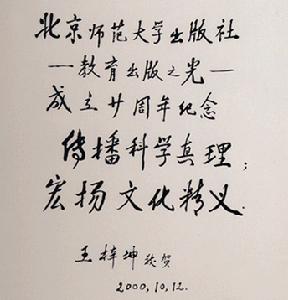 北京师范大学出版社
—教育出版之光—
成立廿周年纪念
传播科学真理；
宏扬文化精义.
王梓坤 敬贺
2000,10,12.